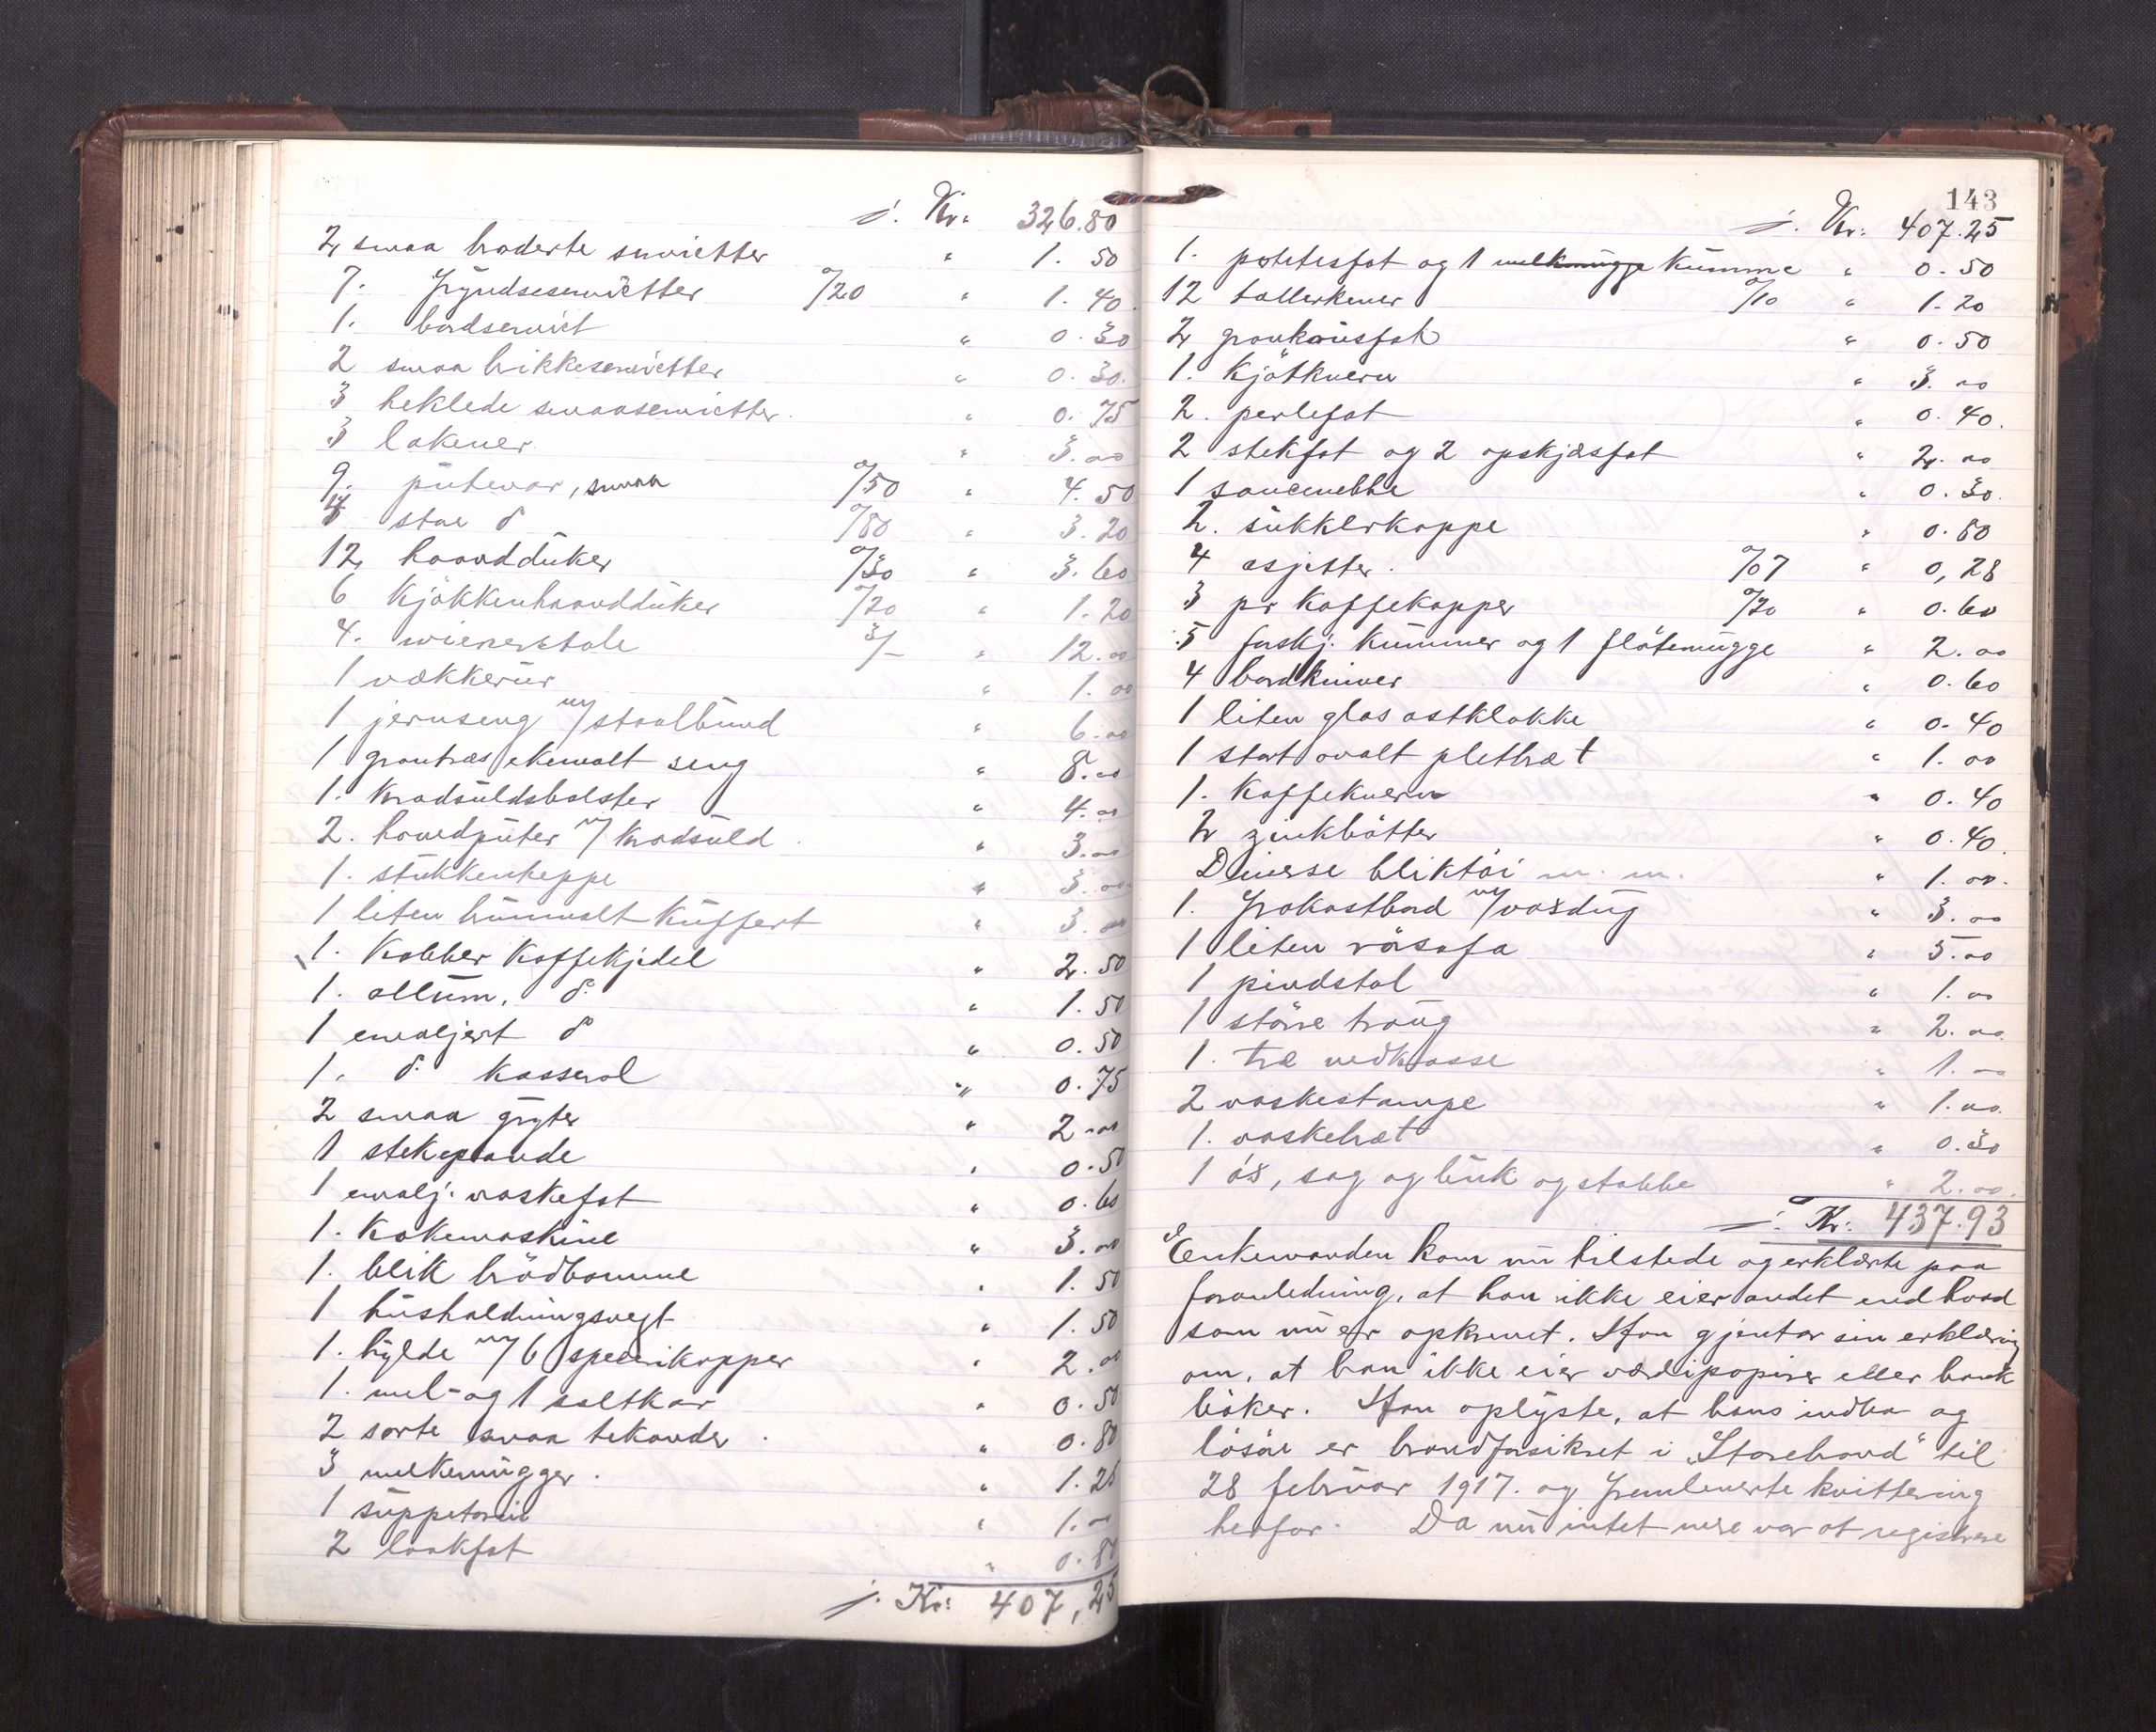 ÷. Kr. 326.80
2 smaa broderte servietter " 1.50
7. Fryndseservietter %20 " 1.40
1. bordserviet " 0.30
2 smaa brikkeservietter " 0.30.
3 heklede smaaservietter. " 0.75
3 lakener " 3.00
9. putevar, smaa %50 " 4.50
4 store do %80 " 3.20
12 haandduker %30 " 3.60
6 Kjøkkenhaandduker %20 " 1.20
4. wienerstole 3/- " 12.00
1 vækkerur " 1.00
1 jernseng m/staalbund " 6.00
1 grantræs ekemalt seng " 8.00
1. Kradsuldsbolster " 4.00
2. hovedputer m/ Kradsuld. " 3.00
1. stukkenteppe " 3.00
1 liten brunmalt Kuffert " 3.00
1. Kobber Kaffekjedel " 2.50
1. allum. do " 1.50
1 emaljert do " 0.50
1. do Kasserol " 0.75
2 smaa gryter " 2.00
1 stekepande " 0.50
1 emalj. vaskefat " 0.60
1. Kokemaskine " 3.00
1. blik brödbomme " 1.50
1 husholdningsvegt " 1.50
1. hylde m/ 6 specerikopper " 2.00
1. mel- og 1 saltkar " 0.50
2 sorte smaa tekander. " 0.80
3 melkemugger. " 1.25
1 suppeterin " 1.00
2 lookfat " 0.80
÷. Kr: 407,25
143
÷. Kr: 407.25
1. potetesfat og 1 melkmugge Kumme " 0.50
12 tallerkener %10 " 1.20
2 graukausfat " 0.50
1. Kjötkvern " 3.00
2. perlefat " 0.40.
2 stekfat og 2 opskjæsfat " 2.00
1 saucenebbe " 0.30.
2. sukkerkoppe " 0.80
4 asjetter. %07 " 0,28
3 pr Kaffekopper %20 " 0.60
5 forskj. Kummer og 1 flötemugge " 2.00
4 bordkniver " 0.60
1 liten glas ostklokke " 0.40
1 stort ovalt pletbræt " 1.00
1. Kaffekvern " 0.40
2 zinkbötter " 0.40.
Diverse bliktöi m. m. " 1.00.
1. Frokostbord m/voxdug " 3.00
1 liten rörsofa " 5.00
1 pindstol " 1.00
1 större traug " 2.00.
1. træ vedkasse " 1.00
2 vaskestampe " 1.00.
1. vaskebræt " 0.30
1 öx, sag og buk og stabbe " 2.00.
÷. Kr: 437.93
Enkemanden kom nu tilstede og erklærte paa
foranledning, at han ikke eier andet end hvad
som nu er opkrevet. Han gjentar sin erklæring
om, at han ikke eier værdipapirer eller bank
böker. Han oplyste, at hans indbo og
lösöre er brandforsikret i "Storebrand" til
28 februar 1917. og fremleverte kvittering
herfor. Da nu intet mere var at registrere